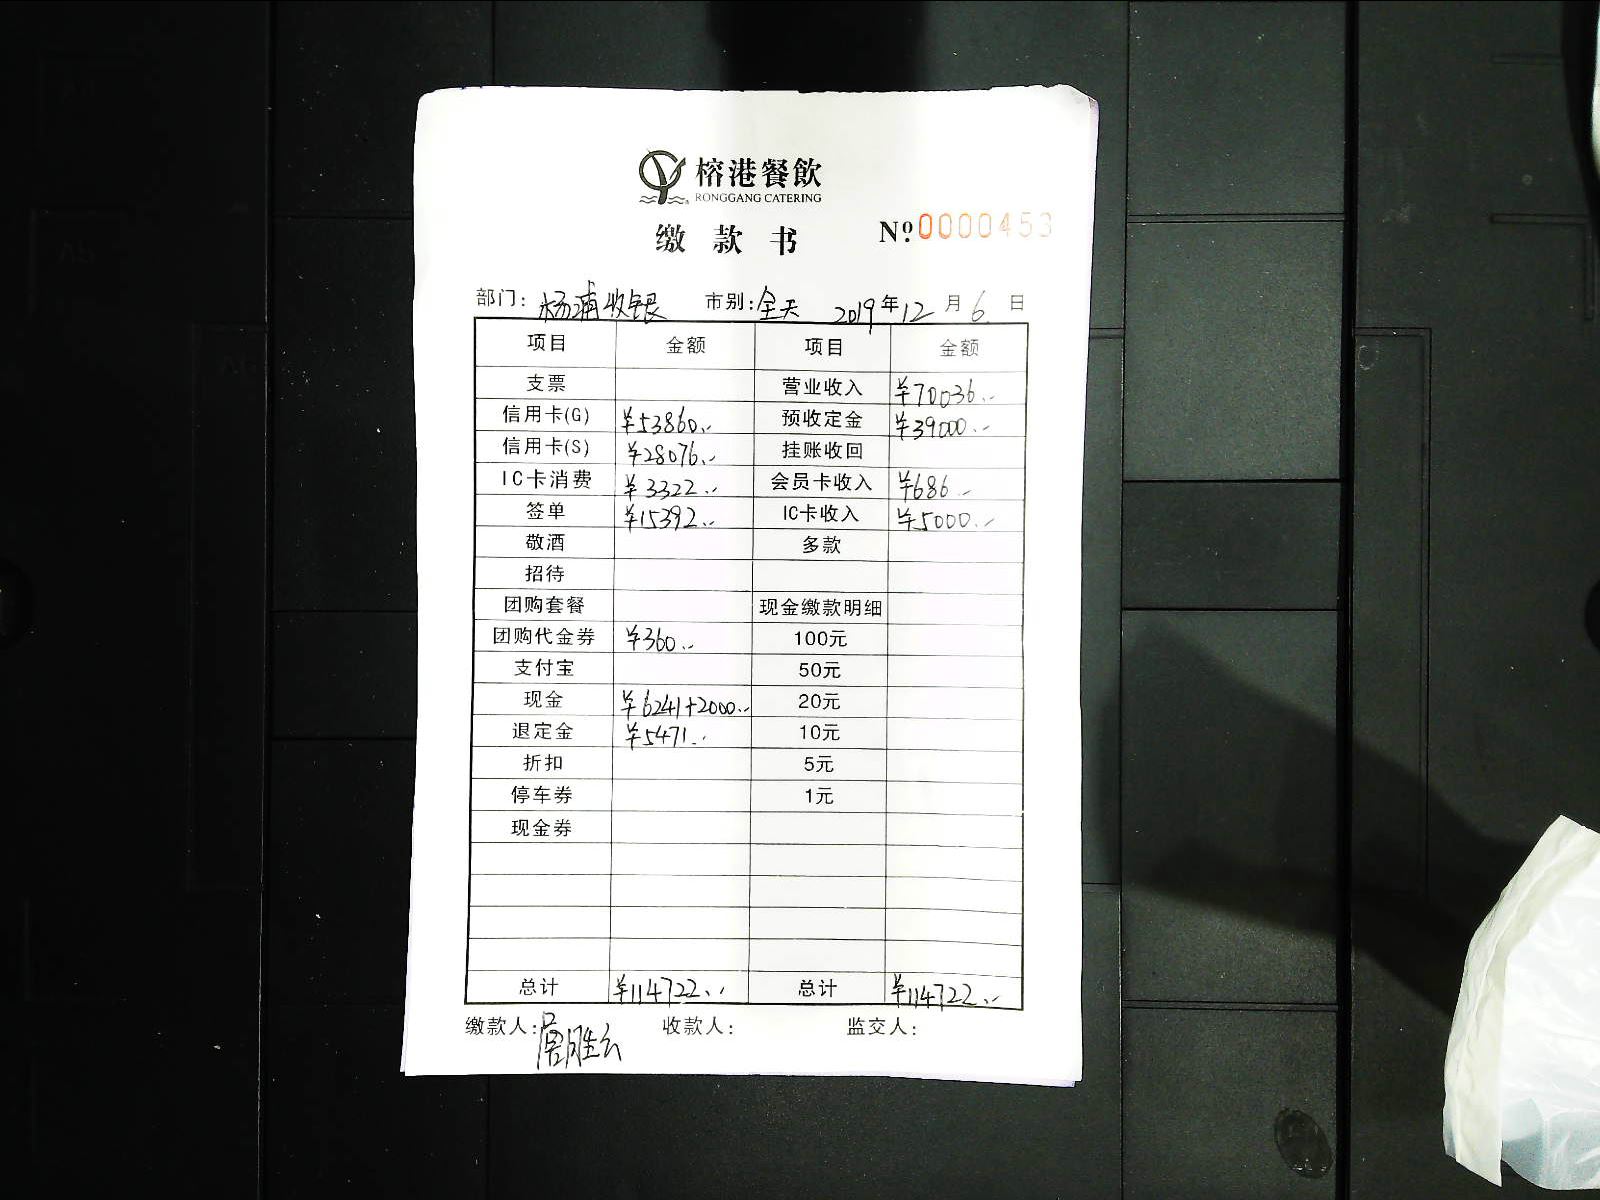 榕港餐飲
RONGGANG CATERING
缴款书 Nº:0000453
部门: 杨浦收银 市别: 全天 2019年12月6日
项目 金额 项目 金额
支票 营业收入 ¥70036.-
信用卡(G) ¥53860.- 预收定金 ¥39000.-
信用卡(S) ¥28076.- 挂账收回
IC卡消费 ¥3322.- 会员卡收入 ¥686.-
签单 ¥15392.- IC卡收入 ¥5000.-
敬酒 多款
招待
团购套餐 现金缴款明细
团购代金券 ¥360.- 100元
支付宝 50元
现金 ¥6241+2000.- 20元
退定金 ¥5471.- 10元
折扣 5元
停车券 1元
现金券
总计 ¥114722.- 总计 ¥114722.-
缴款人: 收款人: 监交人: